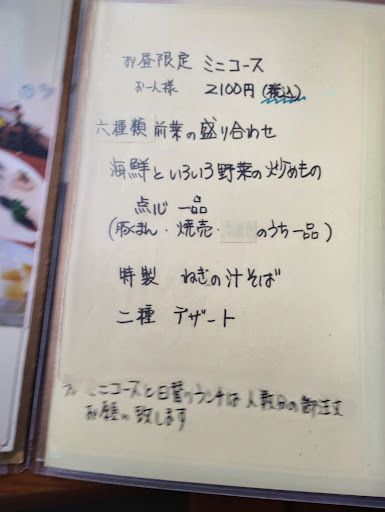 お昼限定 ミニコース
お一人様 2100円(税込)
六種類前菜の盛り合わせ
海鮮といろいろ野菜の炒めもの
点心 一品
(豚まん・焼売・ のうち一品)
特製 ねぎの汁そば
二種 デザート
ミニコースと日替りランチは人数分の御注文
お願い致します